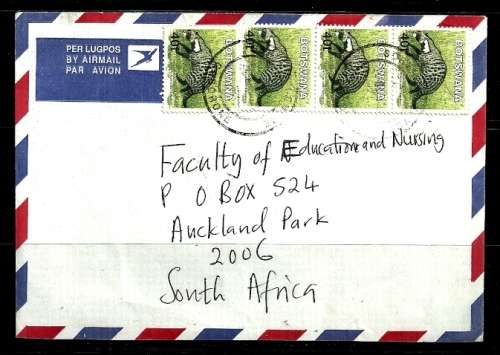 PER LUGPOS
BY AIRMAIL
PAR AVION
BOTSWANA
BOTSWANA
BOTSWANA
BOTSWANA
Faculty of Education and Nursing
P O BOX 524
Auckland Park
2006
South Africa